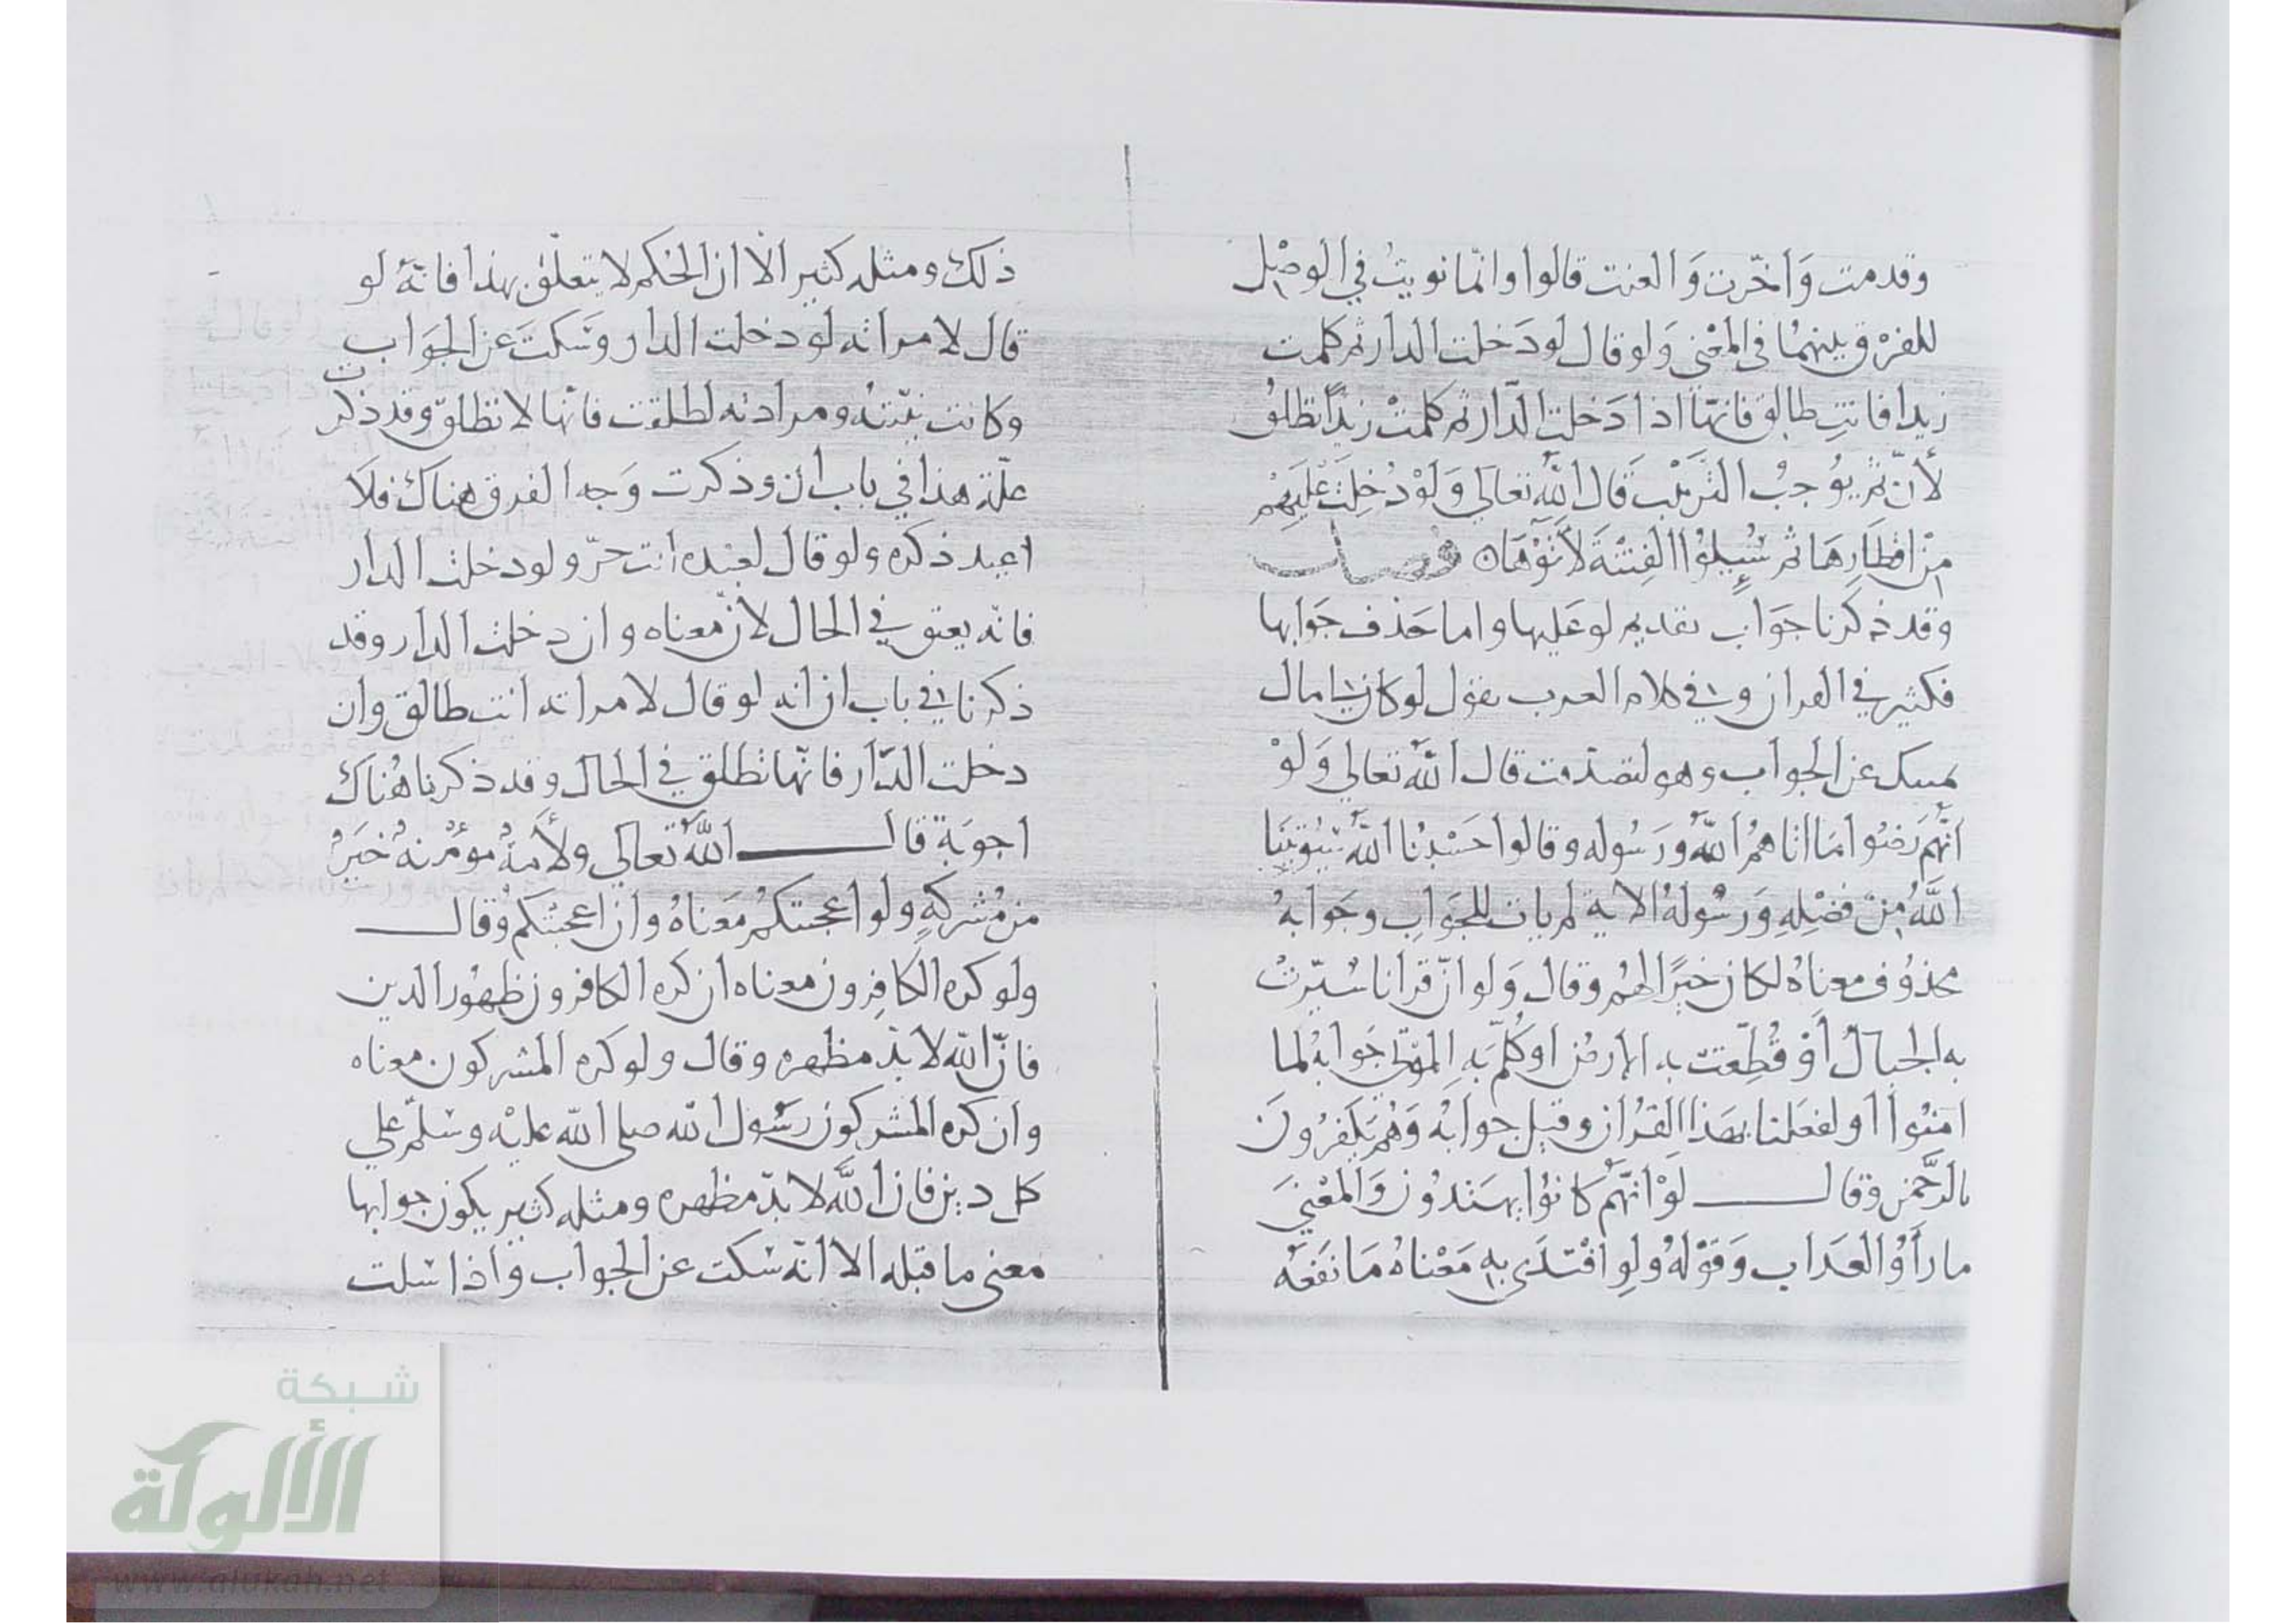 وقدمت وَاخّرت وَالغيت قالوا وانّما نويتُ في الوصْل
للفرْق بينهمُا في المعْنى وَلو قال لو دَخلت الدار ثم كلمت
زيدا فانتِ طالق فانهّا اذا دَخلتِ الدّار ثم كلمتْ زيدًا تطلقُ
لأنّ ثمّ يوُجبُ الترتيْبَ قَال اللهُ تعالى وَلوْ دُخِلَتْ عَليَهِمْ
مِنْ اقطَارِهَا ثم سُئِلوُا الفِتنَةَ لآتَوْهَا ه فصل
وقد ذكرنا جَوَاب تقديم لو عَليها واما حَذف جَوابها
فكثير في القران وفي كلام العرب يقول لو كان لي مال
يمسك عن الجواب وهو لتصدّقت قال اللهُ تعالى وَلوْ
انّهم رَضُوا مَا اتاهمُ اللهُ وَرَسُوله وقالوا حَسْبُنا اللهُ سَيُوتينَا
اللهُ مِنْ فضْلِهِ وَرسُولهُ الاية لم يات للجَوابِ وجَوَابهُ
محذوُف معناهُ لكان خيرًا لهمُ وقال وَلو انّ قرانا سُيّرتْ
به الجبالُ أوْ قُطِّعَت به الارض اوْ كُلِّمَ بهِ الموتى جَوابهُ لما
امنوُا او لفعَلنا بهَذا القُرْان وقيل جوابهُ وَهُم يَكفرُونَ
بالرّحْمن وقال لوْ انّهمُ كانوُا يهتَدوُن وَالمعْنىَ
ما رَأوُا العَذاب وَقوْلهُ ولوِ افْتدَى بهِ مَعْناهُ مَا نفَعَهُ
ذلك ومثله كثير الّا ان الحُكم لا يتعلّق بهذا فانّهُ لو
قال لامراته لو دخلت الدار وَسَكتَ عن الجوَاب
وكانت نيّتهُ ومرادته لطلقت فانّها لا تطلق وقد ذكرت
علّة هذا في باب ان وذكرت وَجه الفرق هناك فلَا
اعيد ذكره ولو قال لعَبْده انت حرّ ولو دخلت الدار
فانّه يعتق في الحال لانّ معناه وان دخلت الدار وقد
ذكرنا في باب ان انه لو قال لامراته انت طالق وان
دخلت الدّار فانّها تطلق في الحال وقد ذكرنا هُناك
اجوبَة قال اللهُ تعالى ولأمَةٌ مؤمْنةٌ خيَرٌ
من مُشركةٍ ولو اعجبتكمُ مَعَناهُ وان اعجبتكم وقال
ولو كره الكافِرون معناه ان كره الكافرون ظهُور الدين
فانّ الله لا بدّ مظهره وقال ولو كره المشركون معناه
وان كره المشركون رسُول الله صلى الله عليْه وسَلمّ على
كل دين فان اللهَ لا بدّ مظهره ومثله كثير يكون جوابها
معنى ما قبله الا انّه سَكت عن الجواب واذا سَلت
شبكة
الألوكة
www.alukah.net